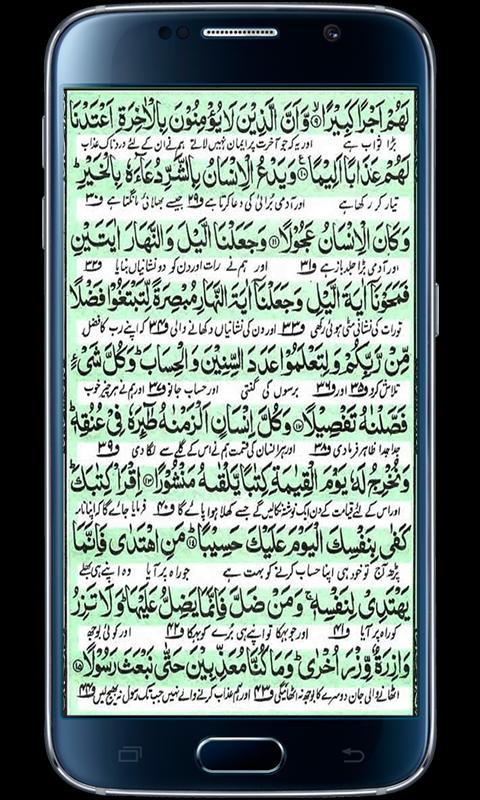 لَهُمْ اَجْرًا كَبِيْرًا ۙ﴿۹﴾ وَّاَنَّ الَّذِيْنَ لَا يُؤْمِنُوْنَ بِالْاٰخِرَةِ اَعْتَدْنَا
بڑا ثواب ہے اور یہ کہ جو آخرت پر ایمان نہیں لاتے ہم نے ان کے لئے دردناک عذاب
لَهُمْ عَذَابًا اَلِيْمًا ﴿۱۰﴾ وَيَدْعُ الْاِنْسَانُ بِالشَّرِّ دُعَآءَهٗ بِالْخَيْرِ ؕ
تیار کر رکھا ہے اور آدمی برائی کی دعا کرتا ہے و۲۹ جیسے بھلائی مانگتا ہے و۳۰
وَكَانَ الْاِنْسَانُ عَجُوْلًا ﴿۱۱﴾ وَجَعَلْنَا الَّيْلَ وَالنَّهَارَ اٰيَتَيْنِ
اور آدمی بڑا جلد باز ہے و۳۱ اور ہم نے رات اور دن کو دو نشانیاں بنایا و۳۲
فَمَحَوْنَاۤ اٰيَةَ الَّيْلِ وَجَعَلْنَاۤ اٰيَةَ النَّهَارِ مُبْصِرَةً لِّتَبْتَغُوْا فَضْلًا
تو رات کی نشانی مٹی ہوئی رکھی و۳۳ اور دن کی نشانیاں دکھانے والی و۳۴ کہ اپنے رب کا فضل
مِّنْ رَّبِّكُمْ وَلِتَعْلَمُوْا عَدَدَ السِّنِيْنَ وَالْحِسَابَ ؕ وَكُلَّ شَيْءٍ
تلاش کرو و۳۵ اور و۳۶ برسوں کی گنتی اور حساب جانو و۳۷ اور ہم نے ہر چیز خوب
فَصَّلْنٰهُ تَفْصِيْلًا ﴿۱۲﴾ وَكُلَّ اِنْسَانٍ اَلْزَمْنٰهُ طٰٓئِرَهٗ فِيْ عُنُقِهٖ ؕ
جدا جدا ظاہر فرمادی و۳۸ اور ہر انسان کی قسمت ہم نے اس کے گلے سے لگا دی و۳۹
وَنُخْرِجُ لَهٗ يَوْمَ الْقِيٰمَةِ كِتٰبًا يَّلْقٰىهُ مَنْشُوْرًا ﴿۱۳﴾ اِقْرَاْ كِتٰبَكَ ؕ
اور اس کے لئے قیامت کے دن ایک نوشتہ نکالیں گے جسے کھلا ہوا پائے گا و۴۰ فرمایا جائے گا کہ اپنا نامہ
كَفٰى بِنَفْسِكَ الْيَوْمَ عَلَيْكَ حَسِيْبًا ؕ﴿۱۴﴾ مَنِ اهْتَدٰى فَاِنَّمَا
پڑھ آج تو خود ہی اپنا حساب کرنے کو بہت ہے جو راہ پر آیا وہ اپنے ہی بھلے
يَهْتَدِيْ لِنَفْسِهٖ ۚ وَمَنْ ضَلَّ فَاِنَّمَا يَضِلُّ عَلَيْهَا ؕ وَلَا تَزِرُ
کو راہ پر آیا و۴۱ اور جو بہکا تو اپنے ہی برے کو بہکا و۴۲ اور کوئی بوجھ
وَازِرَةٌ وِّزْرَ اُخْرٰى ؕ وَمَا كُنَّا مُعَذِّبِيْنَ حَتّٰى نَبْعَثَ رَسُوْلًا ﴿۱۵﴾
اٹھانے والی جان دوسرے کا بوجھ نہ اٹھائے گی و۴۳ اور ہم عذاب کرنے والے نہیں جب تک رسول نہ بھیج لیں و۴۴